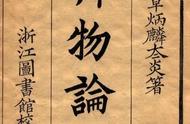 章炳麟太炎箸
齊物論
浙江圖書館校